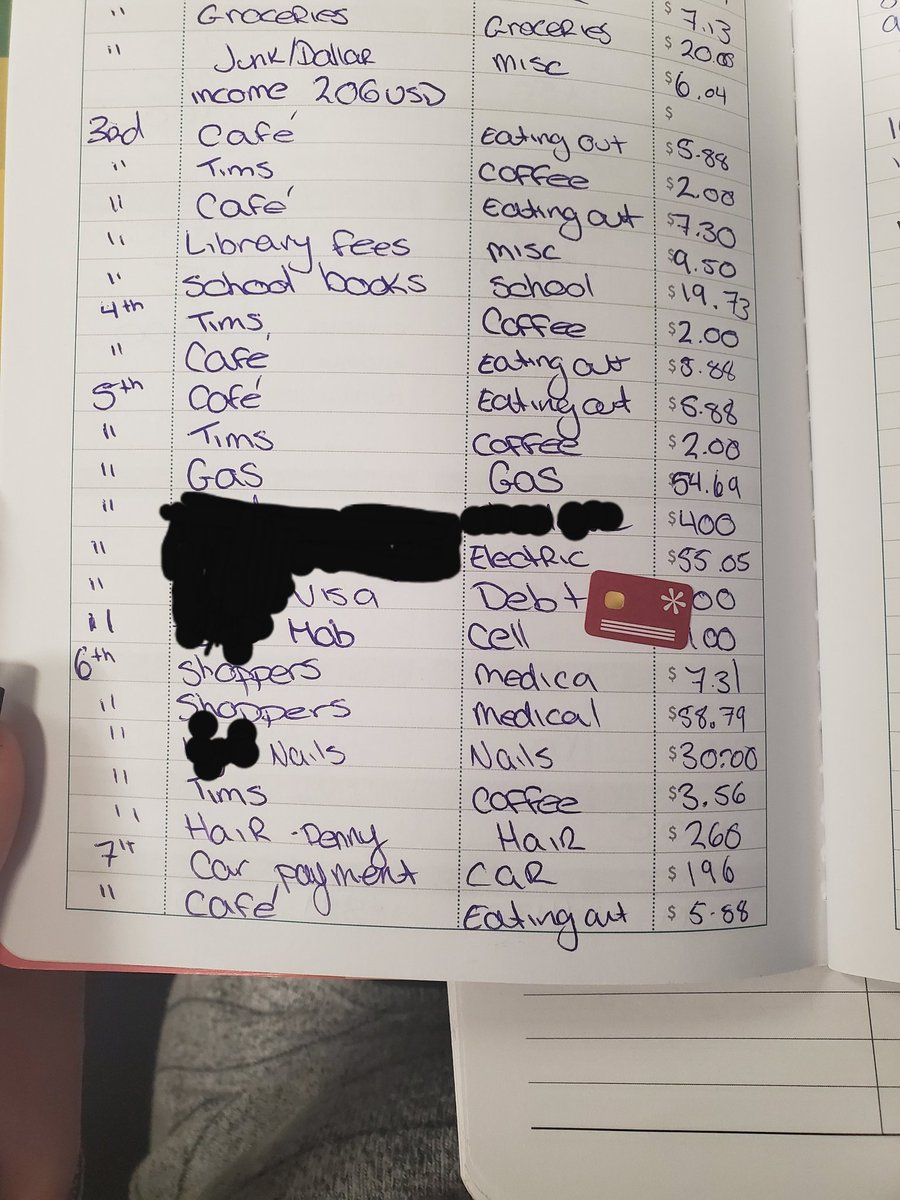 " Groceries Groceries $ 7.13
" Junk/Dollar misc $ 20.00
income 206 USD $6.04
$
3rd Café Eating out $5.88
" Tims Coffee $2.00
" Café Eating out $7.30
" Library fees misc $9.50
" School books School $19.73
4th Tims Coffee $2.00
" Café Eating out $5.88
5th Café Eating out $5.88
" Tims Coffee $2.00
" Gas Gas $54.69
" $400
" Electric $55.05
" Visa Debt 00
" Mob Cell 100
6th Shoppers Medica $ 7.31
" Shoppers Medical $58.79
" Nails Nails $30.00
" Tims Coffee $3.56
" Hair - Denny Hair $ 260
7th Car payment Car $ 196
" Café Eating out $ 5.88